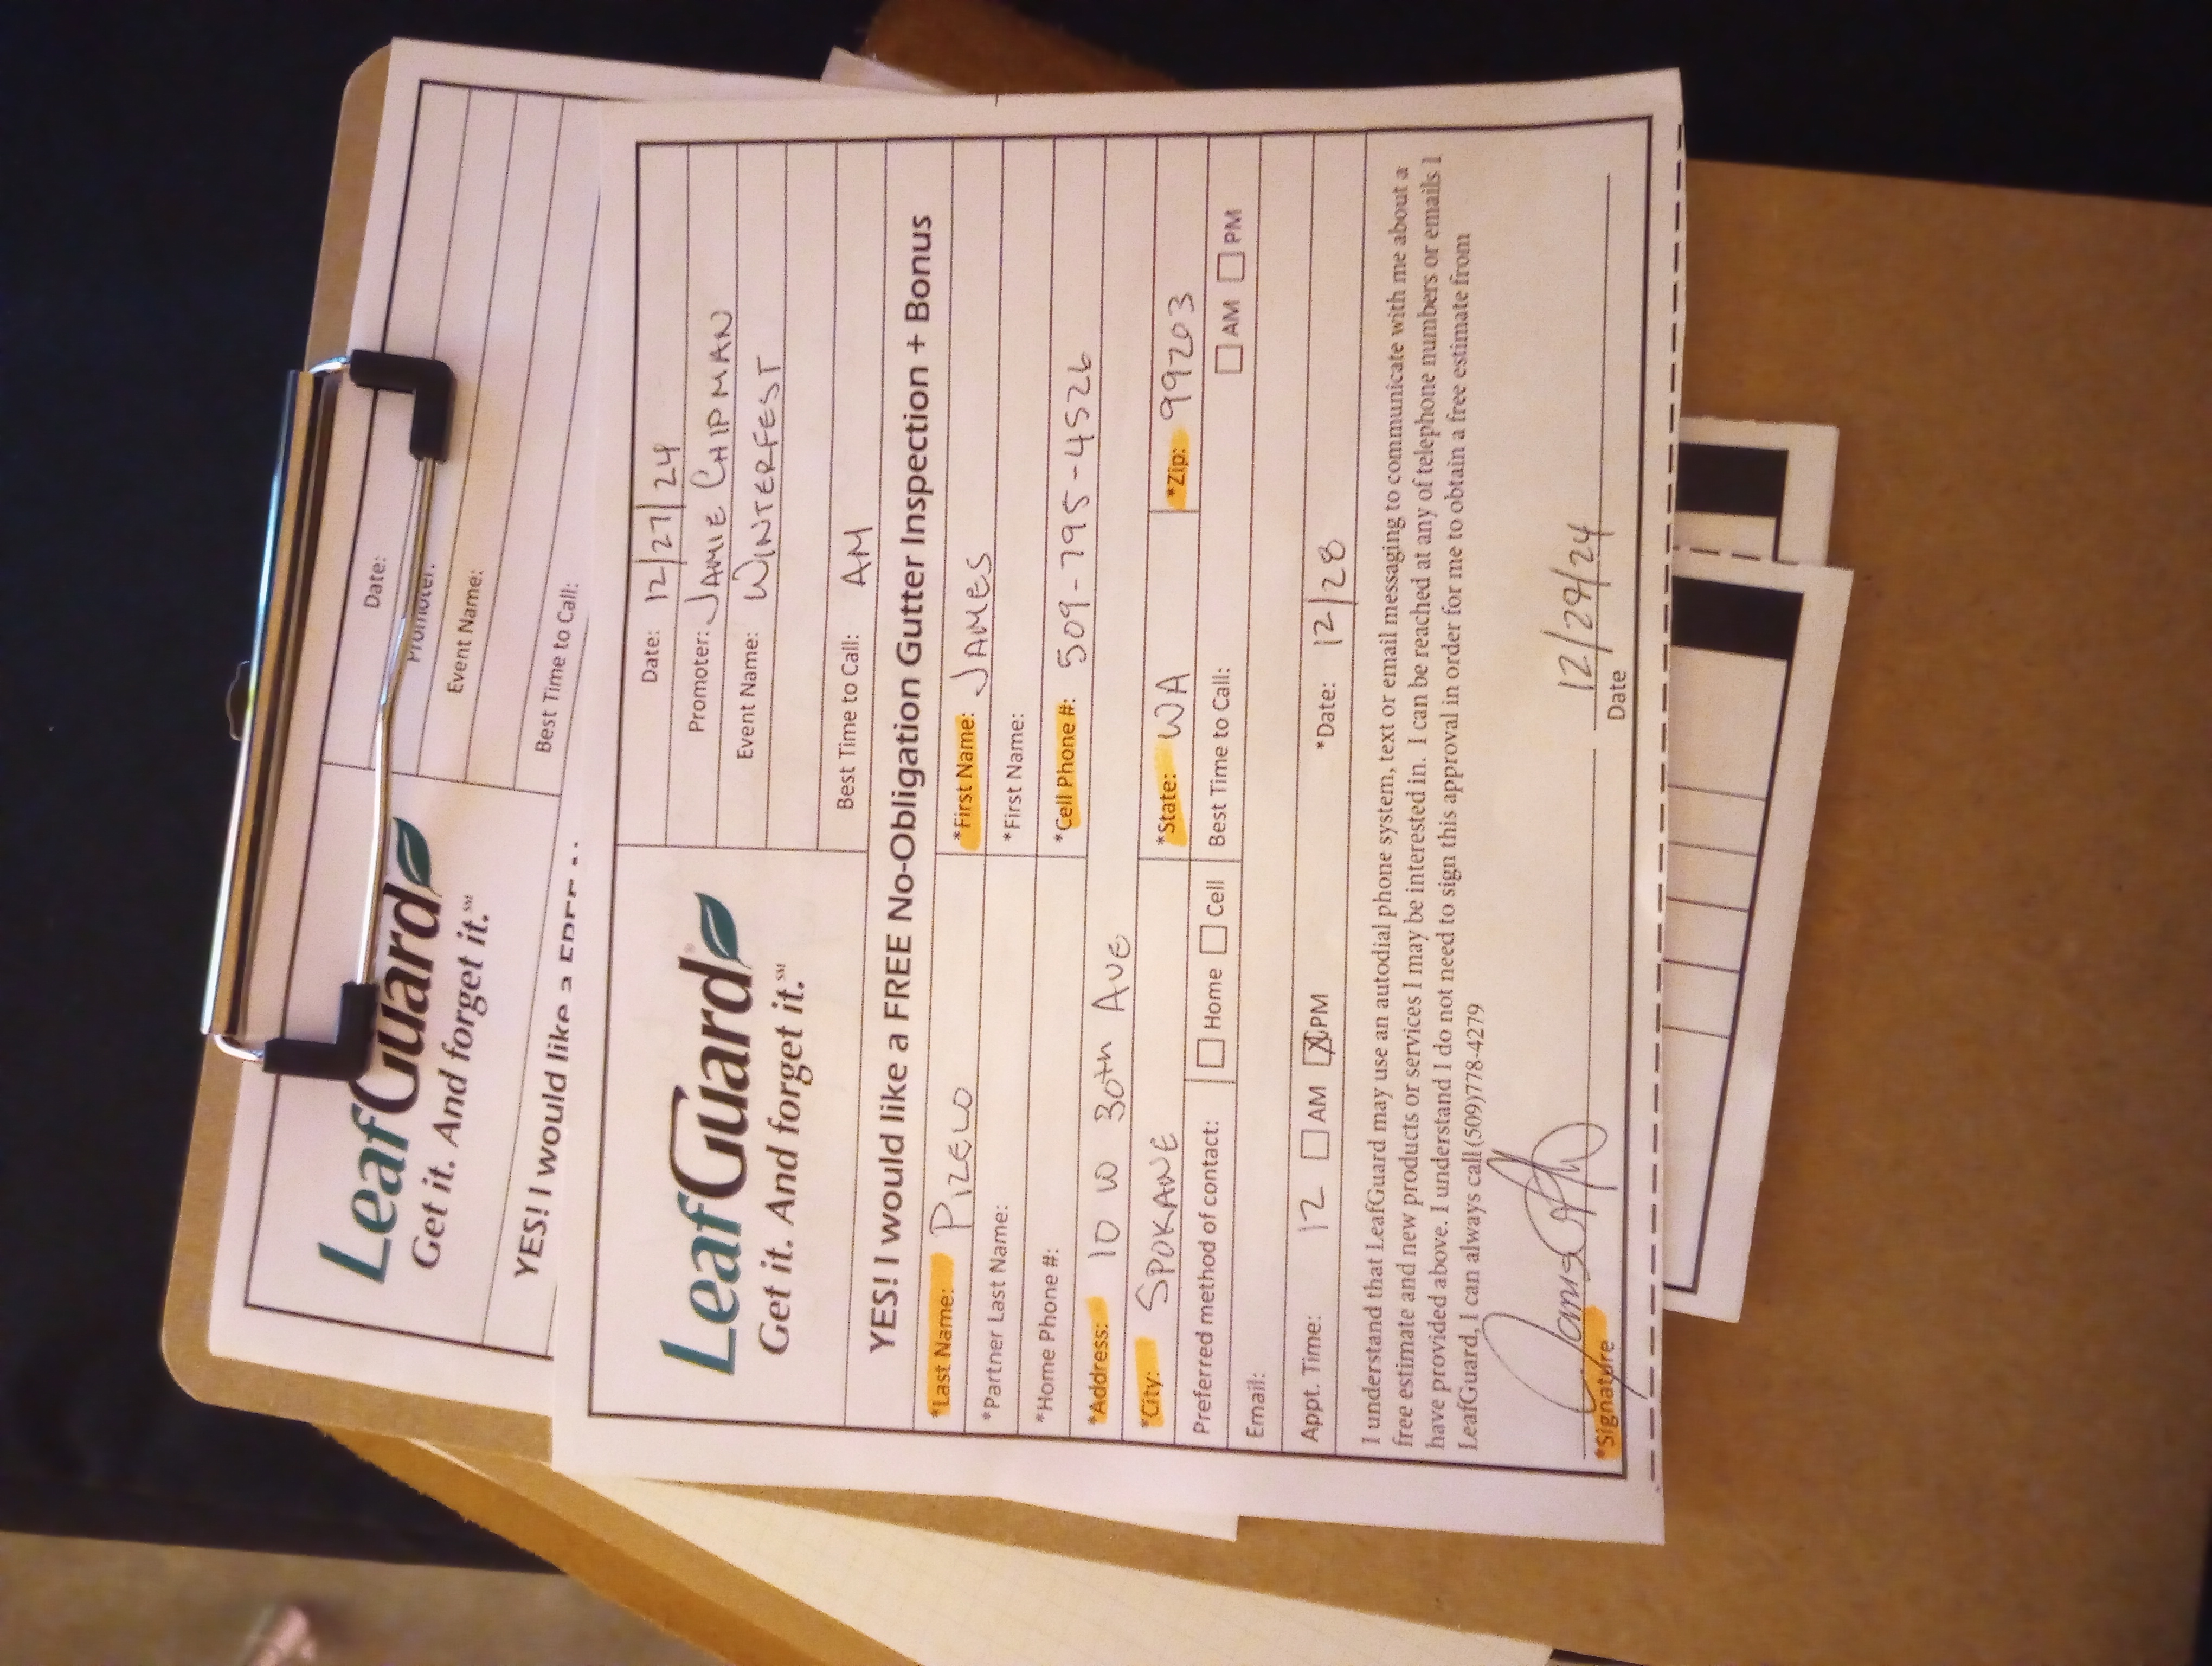 LeafGuard
Get it. And forget it.℠
Date:
Promoter:
Event Name:
Best Time to Call:
YES! I would like a FREE
LeafGuard
Get it. And forget it.℠
Date: 12/27/24
Promoter: JAMIE CHIPMAN
Event Name: WINTERFEST
Best Time to Call: AM
YES! I would like a FREE No-Obligation Gutter Inspection + Bonus
*Last Name: PIZELO *First Name: JAMES
*Partner Last Name: *First Name:
*Home Phone #: *Cell Phone #: 509-795-4526
*Address: 10 W 30th AVE
*City: SPOKANE *State: WA *Zip: 99203
Preferred method of contact: Home Cell Best Time to Call: AM PM
Email:
Appt. Time: 12 AM PM *Date: 12/28
I understand that LeafGuard may use an autodial phone system, text or email messaging to communicate with me about a
free estimate and new products or services I may be interested in. I can be reached at any of telephone numbers or emails I
have provided above. I understand I do not need to sign this approval in order for me to obtain a free estimate from
LeafGuard, I can always call (509)778-4279
12/27/24
*Signature Date